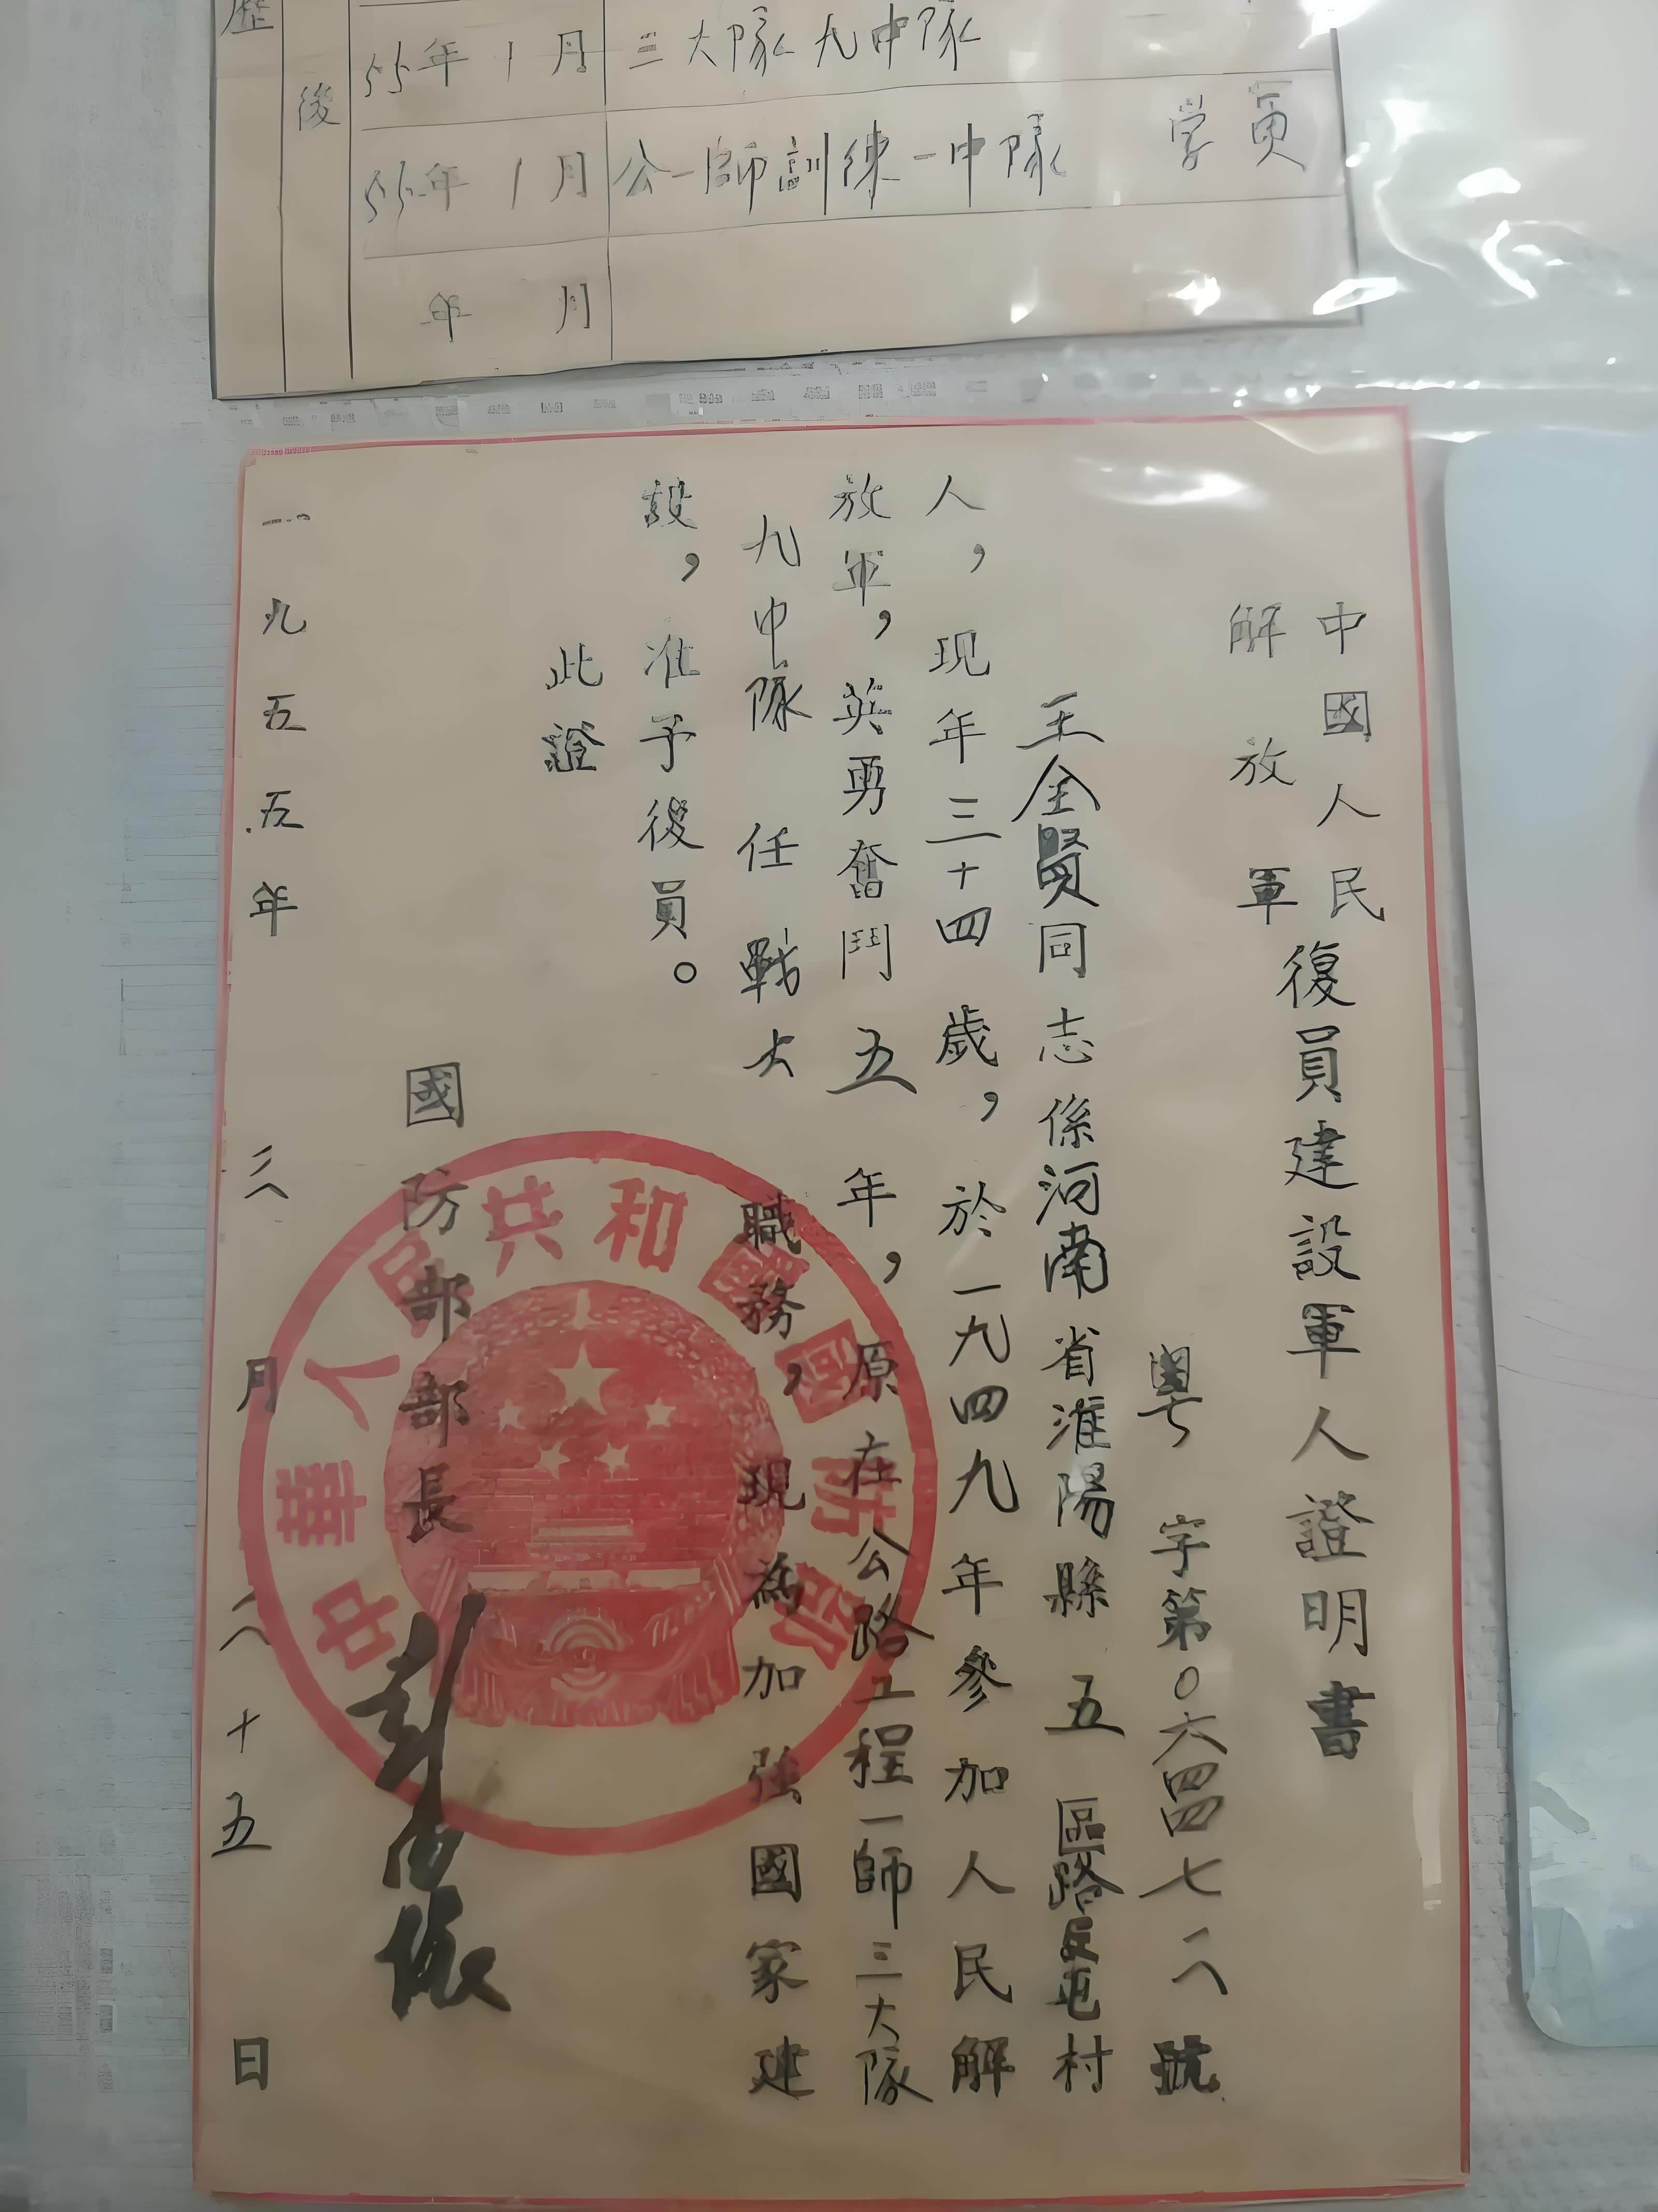 歷
後
55年1月 三大隊九中隊
55年1月 公一師訓練一中隊 学員
年 月
中國人民
解放軍
復員建設軍人證明書
粵字第〇六四四七二八號
王全賢同志係河南省淮陽縣五區路庄村
人，现年三十四歲，於一九四九年參加人民解
放軍，英勇奮鬥五年，原在公路工程一師三大隊
九中隊任戰士職務，現為加強國家建
設，准予復員。
此證
國防部部長
彭德懷
一九五五年二月二十五日
中華人民共和國國防部